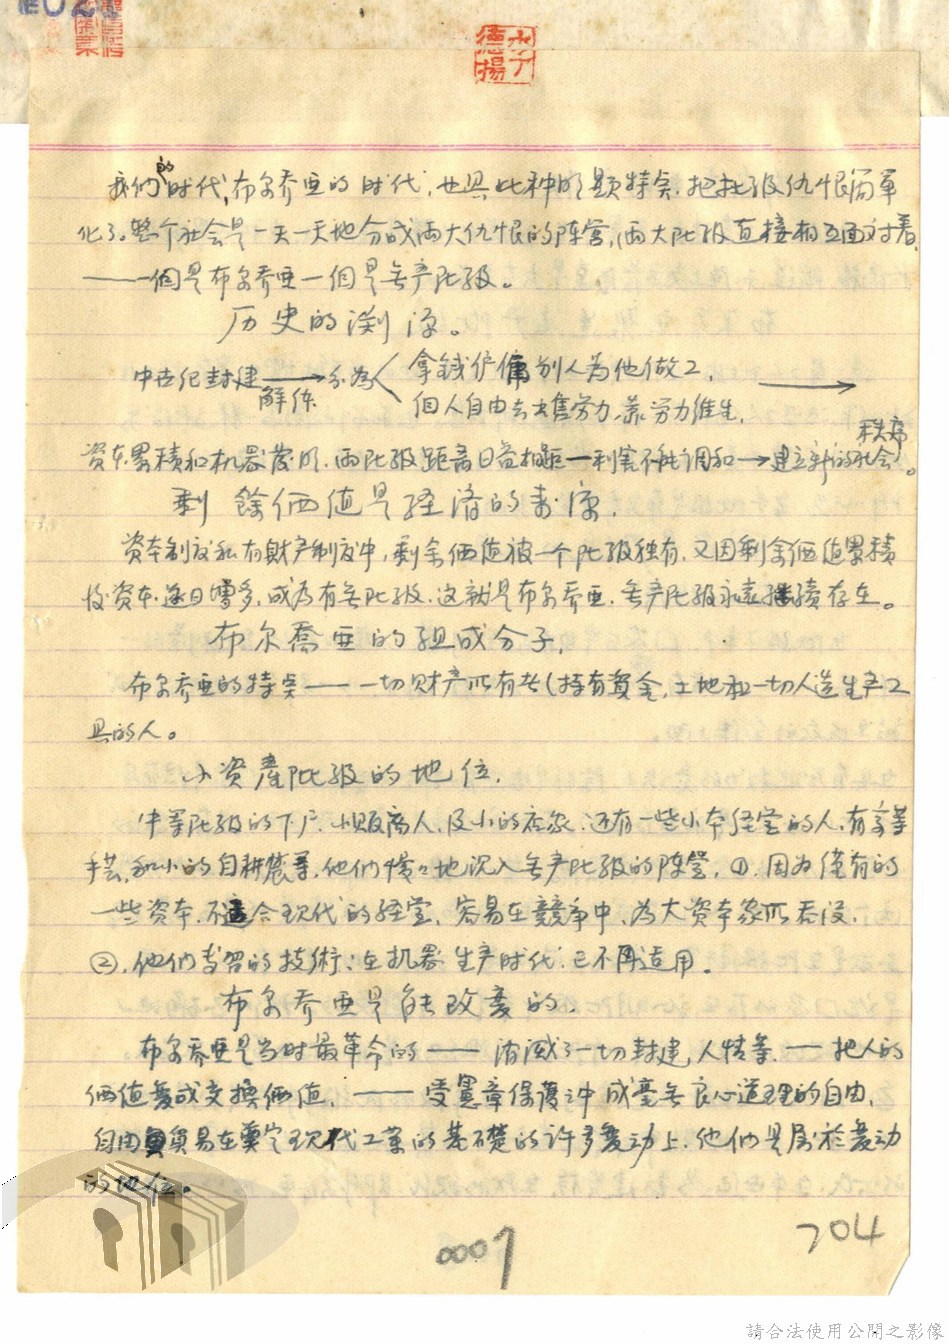 李德揚
我们的时代,布尔乔亚的时代,也具此种明显特点.把阶级仇恨简单
化了。整个社会是一天一天地分成两大仇恨的阵营,两大阶级直接相互面对着,
——一個是布尔乔亚一個是无产阶级。
历史的渊源。
中世纪封建 → 分為 拿钱僱傭别人为他做工.
解体 個人自由去出售劳力.靠劳力维生.
資本累積和机器發明.两阶级距离日益相距—利害不能调和→建立新的社会秩序。
剩餘価值是经济的来源.
資本制度私有財产制度中,剩余価值被一个阶级独有.又因剩余価值累積
後資本逐日增多,成为有无阶级.这就是布尔乔亚.无产阶级永远继續存在。
布尔喬亚的组成分子.
布尔乔亚的特点——一切财产所有者(持有資金,土地和一切人造生产工
具的人。
小资產阶级的地位.
中等阶级的下户.小贩商人.及小的店家.还有一些小本经营的人,有
手芸,和小的自耕農等.他们慢々地沉入无产阶级的阵营,①.因为僅有的
一些资本.不適合现代的经营,容易在競争中,为大资本家所吞没.
②.他们专習的技術;在机器生产时代.已不再适用。
布尔乔亚是能改变的.
布尔乔亚是当时最革命的——消滅了一切封建,人情等.—把人的
価值变成交換価值.——受憲章保護 成毫无良心道理的自由.
自由貿易在 现代工業的基礎的许多变动上.他们是居於变动
的地位。
0007
704
請合法使用公開之影像